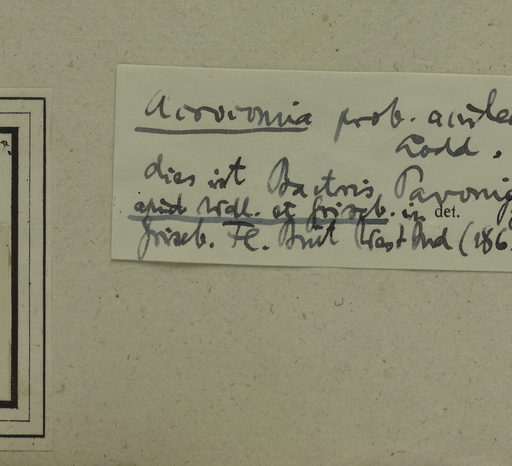 Acrocomia prob. aculea
Lodd.
dies ist Bactris Pavonia
apud Wdl. et Griseb. in det.
Griseb. Fl. Brit West Ind (186